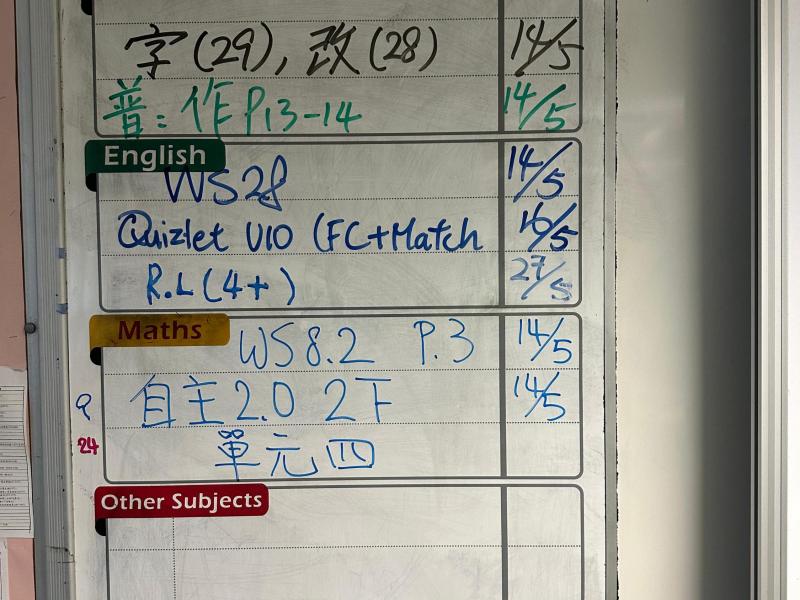 字(29), 改(28) 14/5
普: 作 P13-14 14/5
English
WS28 14/5
Quizlet U10 (FC+Match 16/5
R.L (4+) 27/5
Maths
WS8.2 P.3 14/5
自主2.0 2下 14/5
24
單元四
Other Subjects